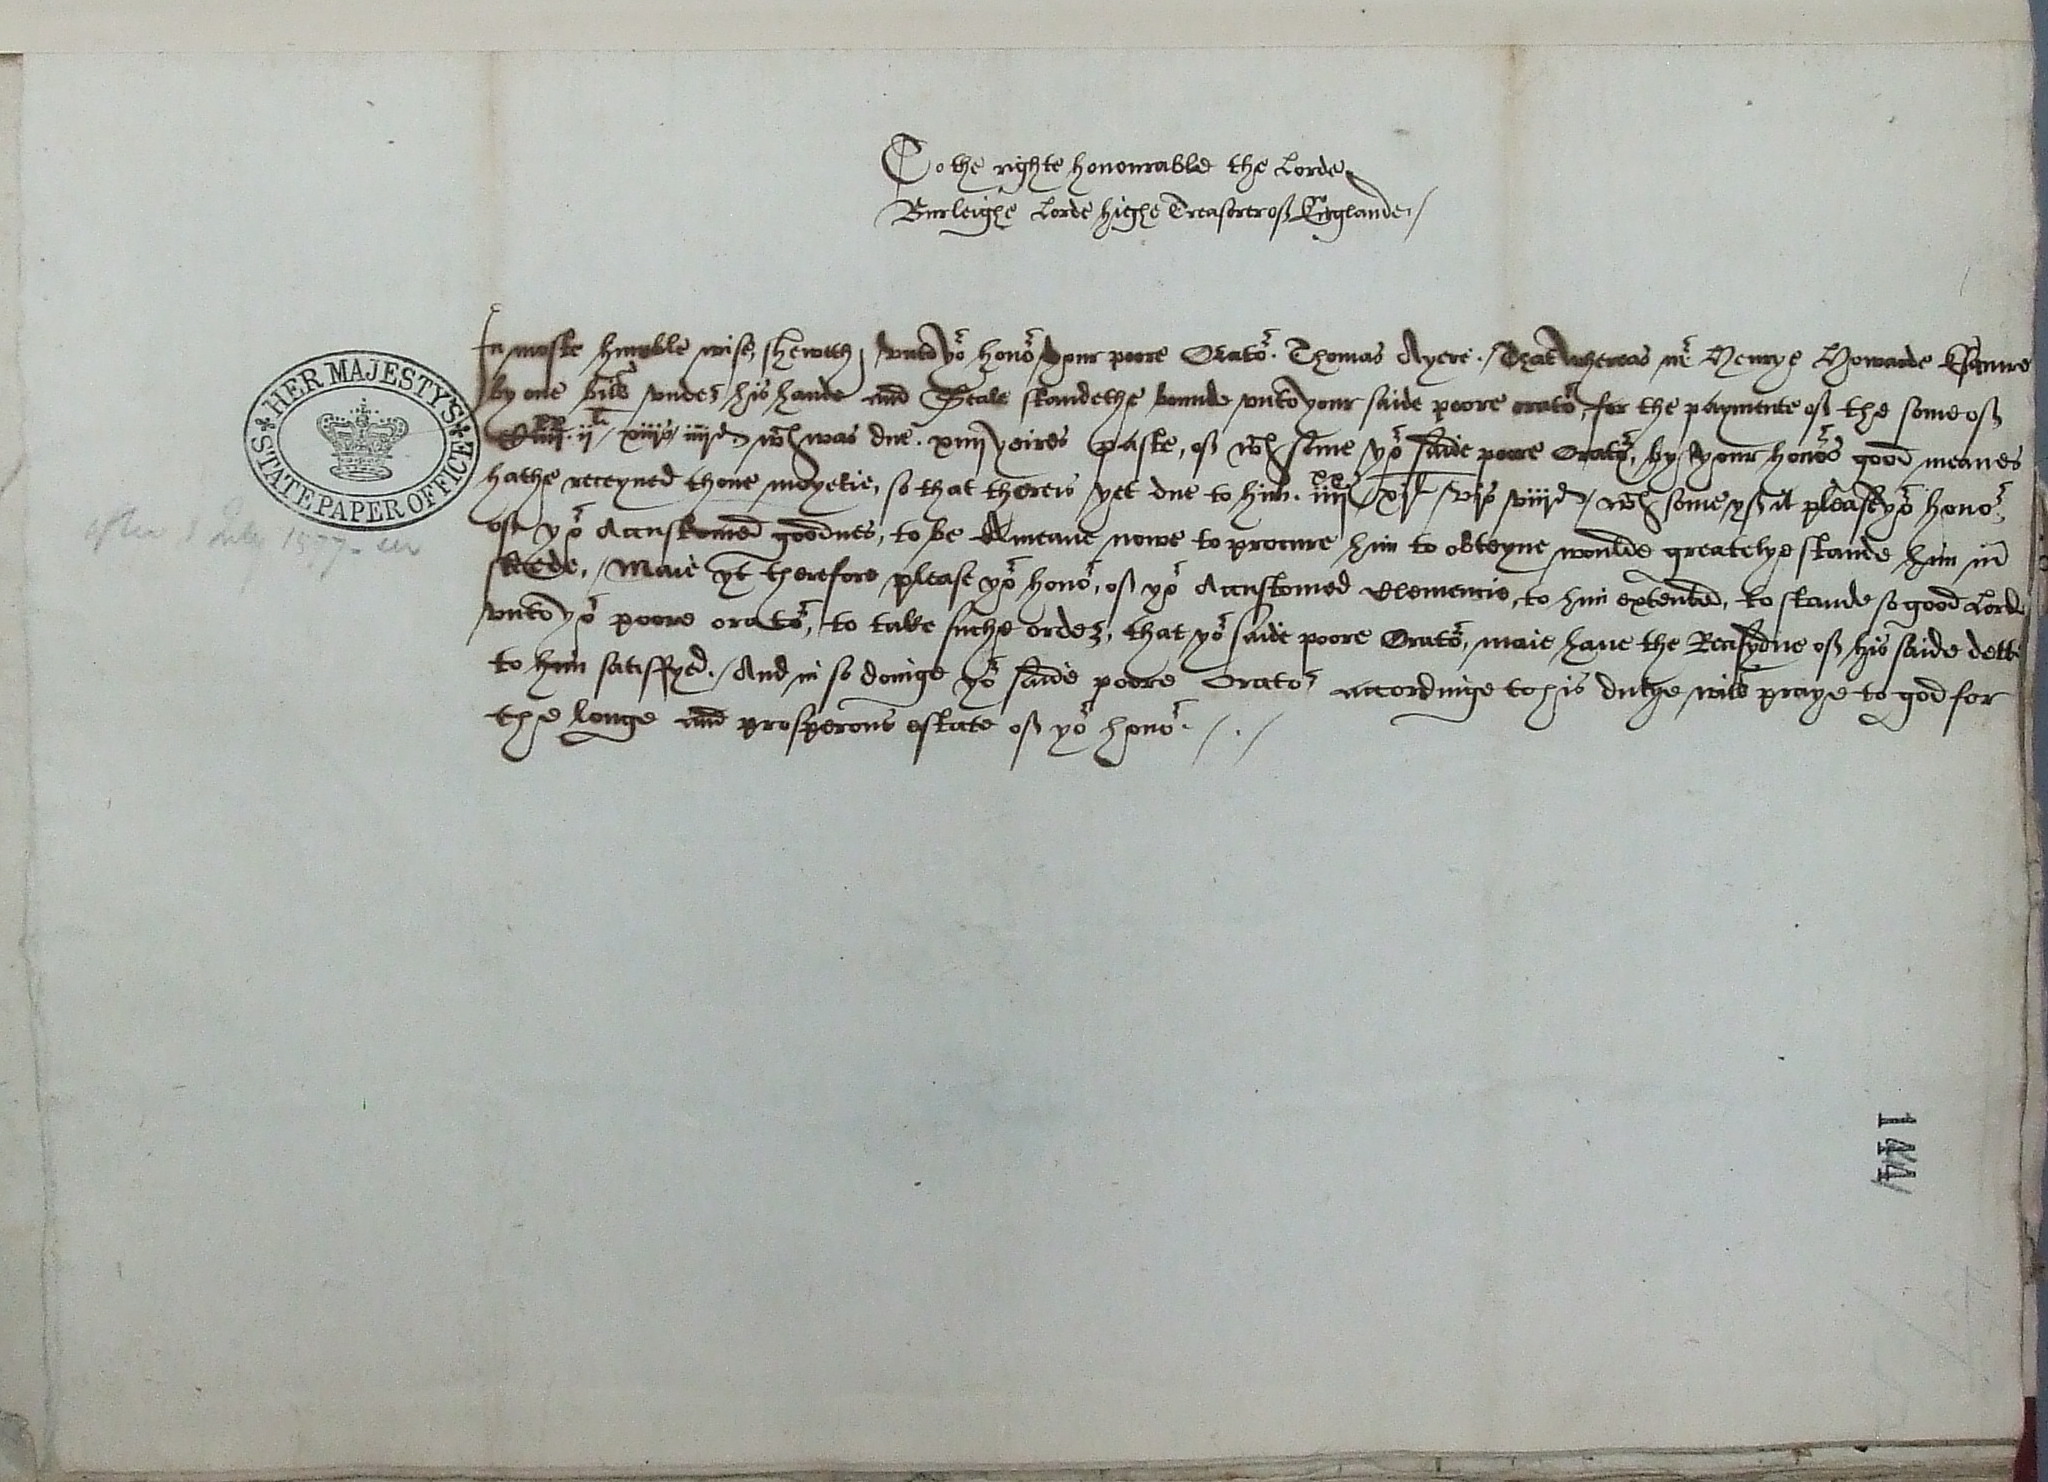 To the righte honourable the Lorde
Burleighe Lorde highe Treasorer of Englande ./
In moste humble wise, shewith, unto yor honor your poore Orator. Thomas Ayere. / That whereas mr Henrye Howarde Esquire
by one bill under his hande and Seale standethe bounde unto your saide poore orator, for the paymente of the some of
Ciiijxx. ijli. xiijs iiijd. wch was due. xiiij yeires paste, of wch some yor saide poore Orator, by your honors good meanes
hathe receyued thone moyetie, so that there is yet due to him. iiijxx xjli vjs viijd. / wch some, yf it please yor honor,
of yor Accustomed goodnes, to be A meane nowe to procure him to obteyne, woulde greatelye stande him in
steede, / Maie yt therefore please yor honor, of yor Accustomed Clemencie, to him extended, to stande so good Lorde
unto yor poore orator, to take suche order, that yor saide poore Orator, maie haue the Resydue of his saide debte
to him satisfyed. / And in so doinge yor saide poore Orator accordinge to his dutye will praye to god for
the longe and prosperous estate of yor honor. / . /
HER MAJESTY'S
STATE PAPER OFFICE
after 5 July 1577
144